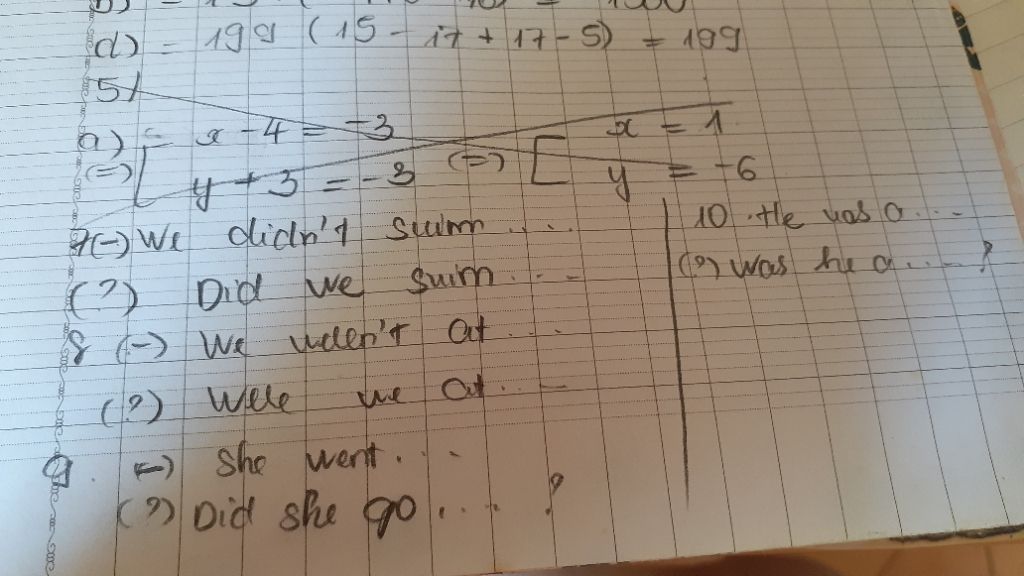 d) = 199 (15 - 17 + 17 - 5) = 199
5/
a) x - 4 = -3
(=) [ y + 3 = -3 (=) [ x = 1
y = -6
7(-) We didn't swim .....
(?) Did we swim ....
8 (-) We weren't at ...
(?) Were we at ...
9. (-) She went....
(?) Did she go .... ?
10. He was a ...
(?) Was he a .... ?